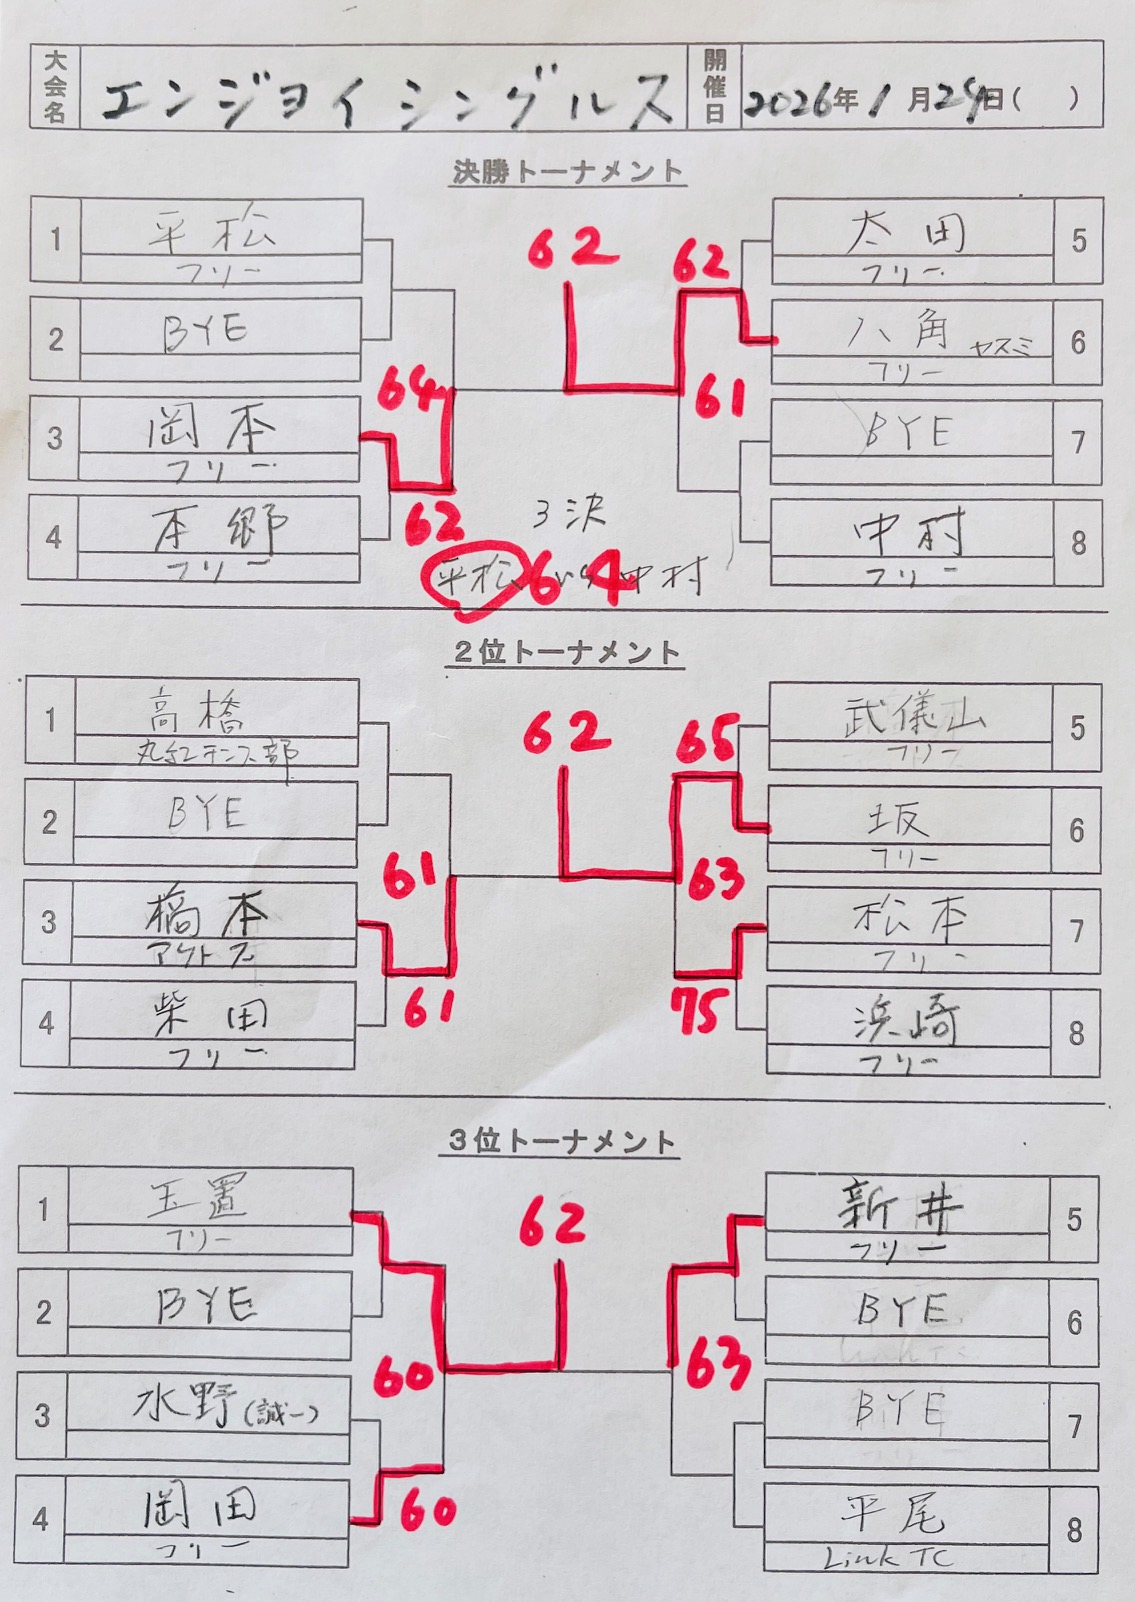 大会名 エンジョイシングルス 開催日 2026年1月29日( )
決勝トーナメント
1 平松 フリー
2 BYE
3 岡本 フリー
4 本郷 フリー
64
62
62
62
61
太田 フリー 5
八角 ヤスミ フリー 6
BYE 7
中村 フリー 8
3決
平松 64 vs 中村
2位トーナメント
1 高橋 丸紅テニス部
2 BYE
3 橋本 アクトス
4 柴田 フリー
61
61
62
65
63
75
武儀山 フリー 5
坂 フリー 6
松本 フリー 7
浜崎 フリー 8
3位トーナメント
1 玉置 フリー
2 BYE
3 水野(誠一)
4 岡田 フリー
60
60
62
63
新井 フリー 5
BYE 6
BYE 7
平尾 Link TC 8